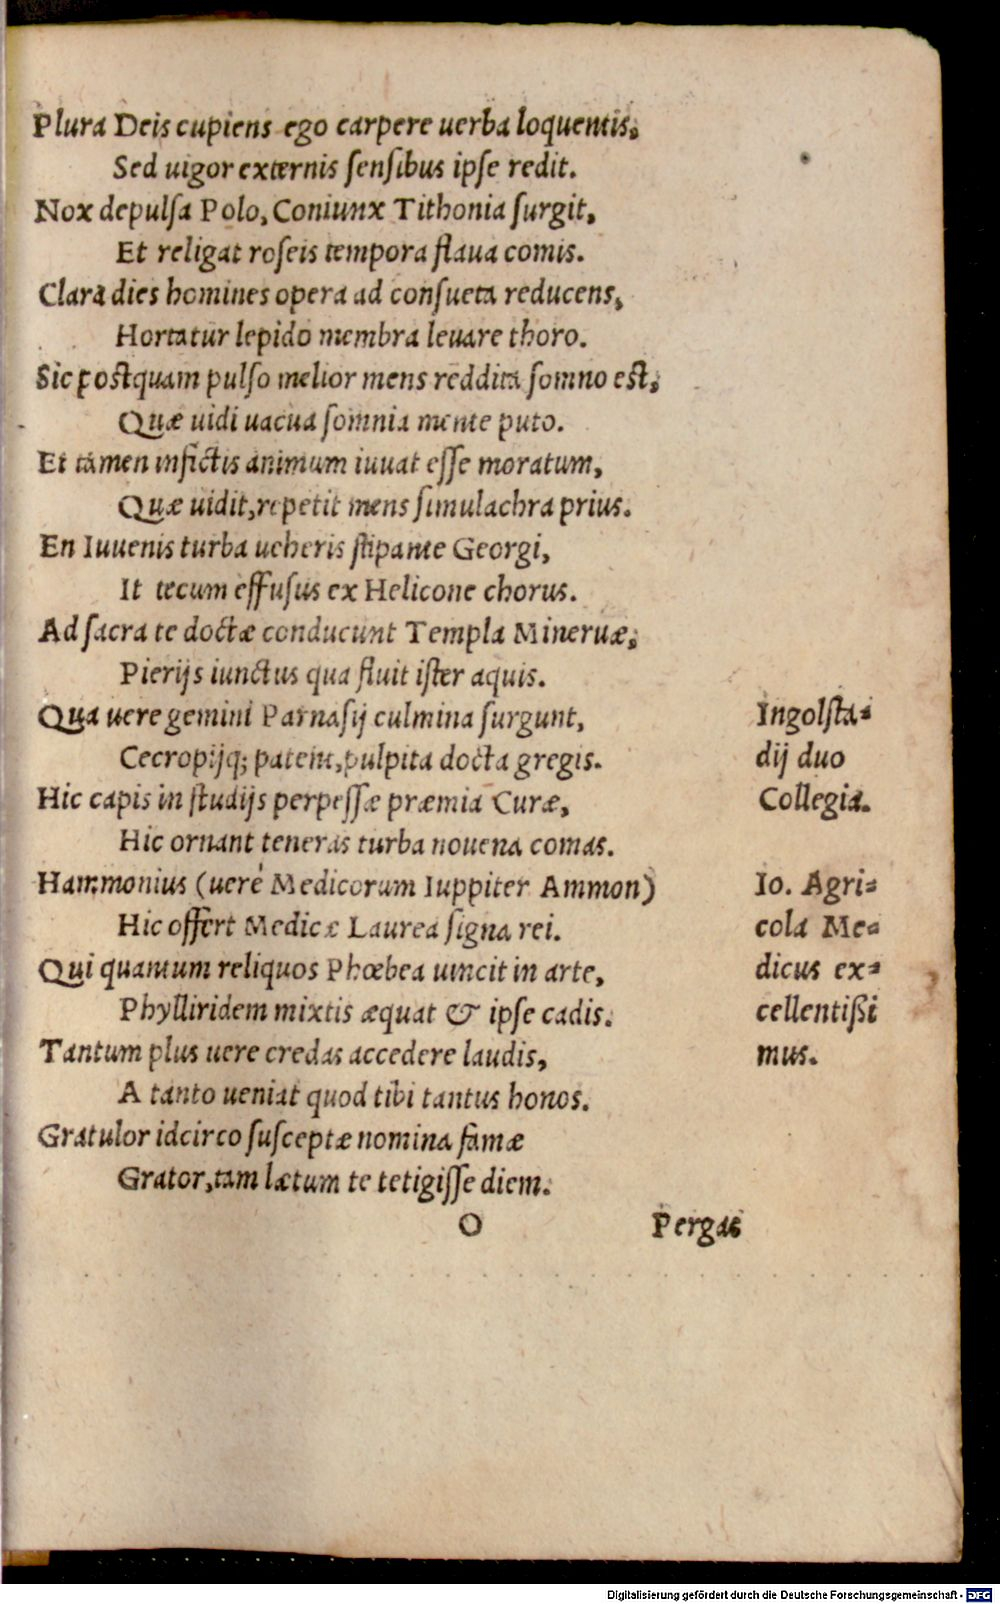 Plura Deis cupiens ego carpere uerba loquentis,
Sed uigor externis ſenſibus ipſe redit.
Nox depulſa Polo, Coniunx Tithonia ſurgit,
Et religat roſeis tempora flaua comis.
Clara dies homines opera ad conſueta reducens,
Hortatur lepido membra leuare thoro.
Sic poſtquam pulſo melior mens reddita ſomno eſt,
Quæ uidi uacua ſomnia mente puto.
Et tamen in fictis animum iuuat eſſe moratum,
Quæ uidit, repetit mens ſimulachra prius.
En Iuuenis turba ueheris ſtipante Georgi,
It tecum effuſus ex Helicone chorus.
Ad ſacra te doctæ conducunt Templa Mineruæ,
Pierijs iunctus qua fluit iſter aquis.
Qua uere gemini Parnaſij culmina ſurgunt,
Cecropijq; patent, pulpita docta gregis.
Hic capis in ſtudijs perpeſſæ præmia Curæ,
Hic ornant teneras turba nouena comas.
Hammonius (uerè Medicorum Iuppiter Ammon)
Hic offert Medicæ Laurea ſigna rei.
Qui quantum reliquos Phœbea uincit in arte,
Phylliridem mixtis æquat & ipſe cadis.
Tantum plus uere credas accedere laudis,
A tanto ueniat quod tibi tantus honos.
Gratulor idcirco ſuſceptæ nomina famæ
Grator, tam lætum te tetigiſſe diem.
O Pergas
Ingolſta-
dij duo
Collegia.
Io. Agri-
cola Me-
dicus ex-
cellentißi
mus.
Digitalisierung gefördert durch die Deutsche Forschungsgemeinschaft - DFG